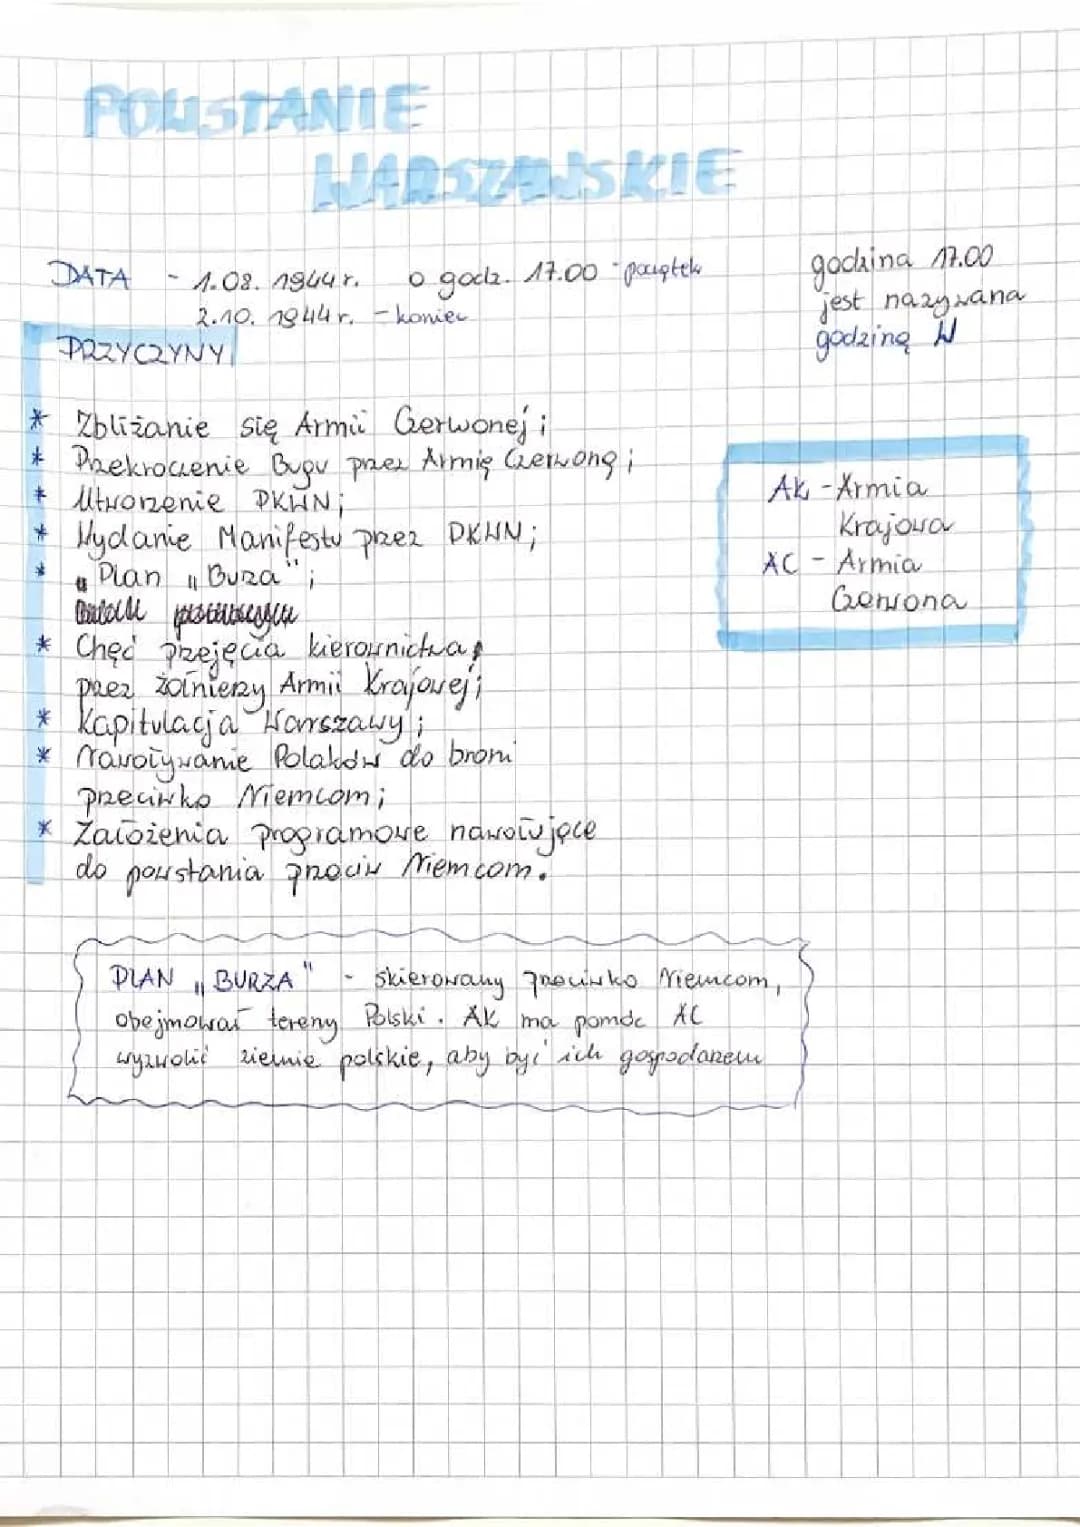 POWSTANIE
WARSZAWSKIE
DATA - 1.08.1944 r. o godz. 17.00 - początek
2.10.1944 r. - koniec
godzina 17.00
jest nazywana
godziną W
PRZYCZYNY
* Zbliżanie się Armii Czerwonej;
* Przekroczenie Bugu przez Armię Czerwoną;
* Utworzenie PKWN;
* Wydanie Manifestu przez PKWN;
* „Plan „Burza”;
* Chęć przejęcia kierownictwa
przez żołnierzy Armii Krajowej;
* Kapitulacja Warszawy;
* Nawoływanie Polaków do broni
przeciwko Niemcom;
* Założenia programowe nawołujące
do powstania przeciw Niemcom.
AK - Armia
Krajowa
AC - Armia
Czerwona
PLAN „BURZA” - skierowany przeciwko Niemcom,
obejmował tereny Polski. AK ma pomóc AC
wyzwolić ziemie polskie, aby być ich gospodarzem